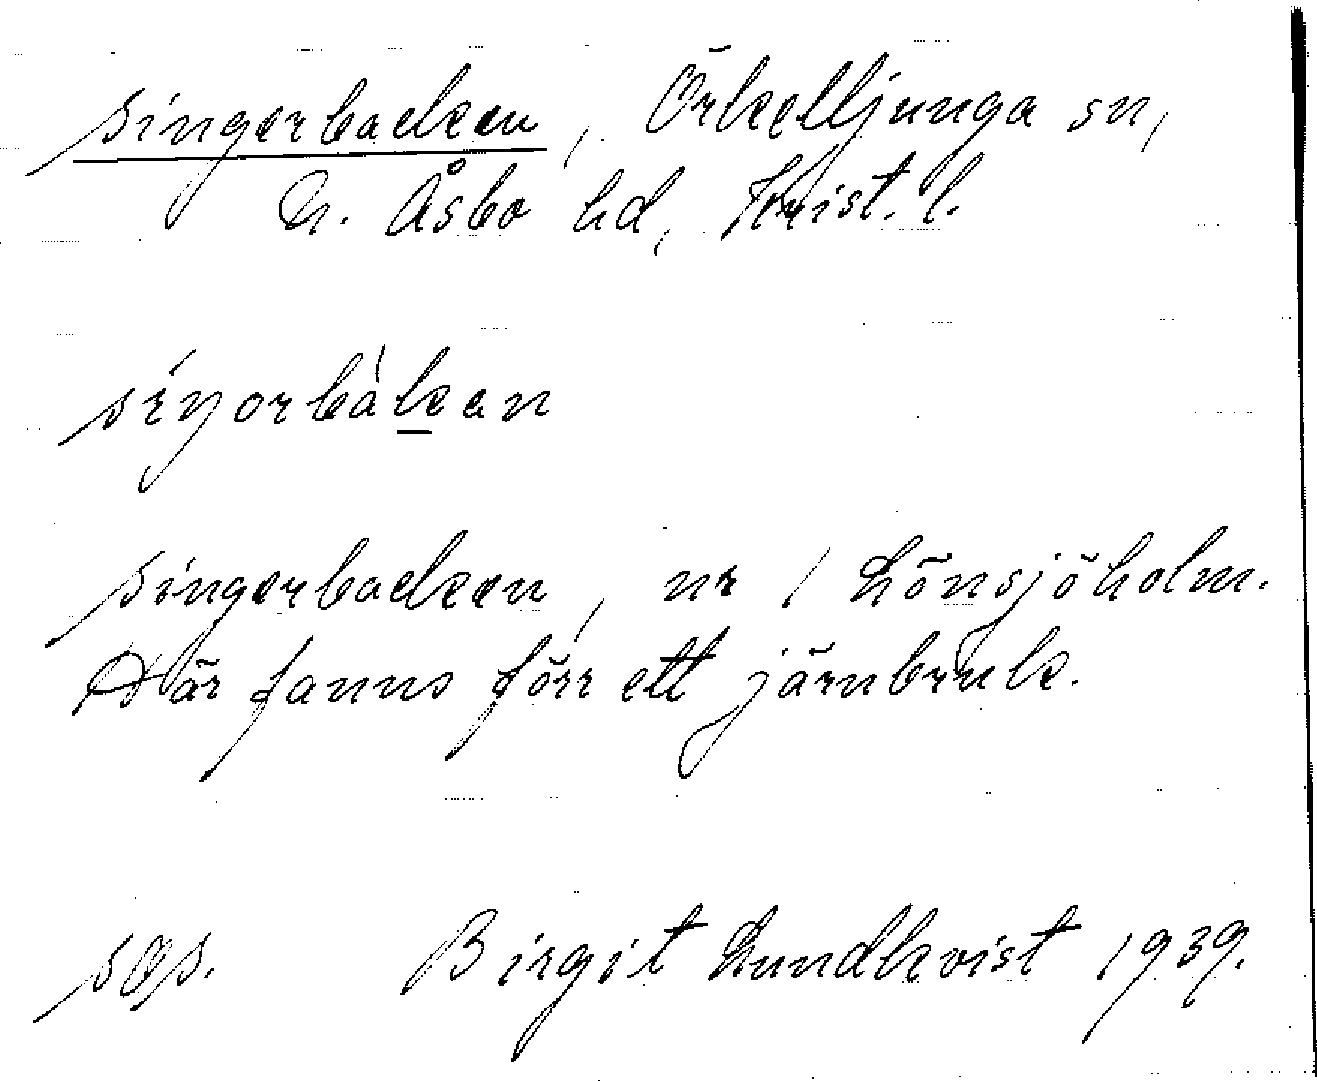 singerbacken, Örkelljunga sn,
N. Åsbo hd, Krist. l.
síŋorbàkan
singerbacken, nr 1 Lönsjöholm.
Där fanns förr ett järnbruk.
Birgit Lundkvist 1939.